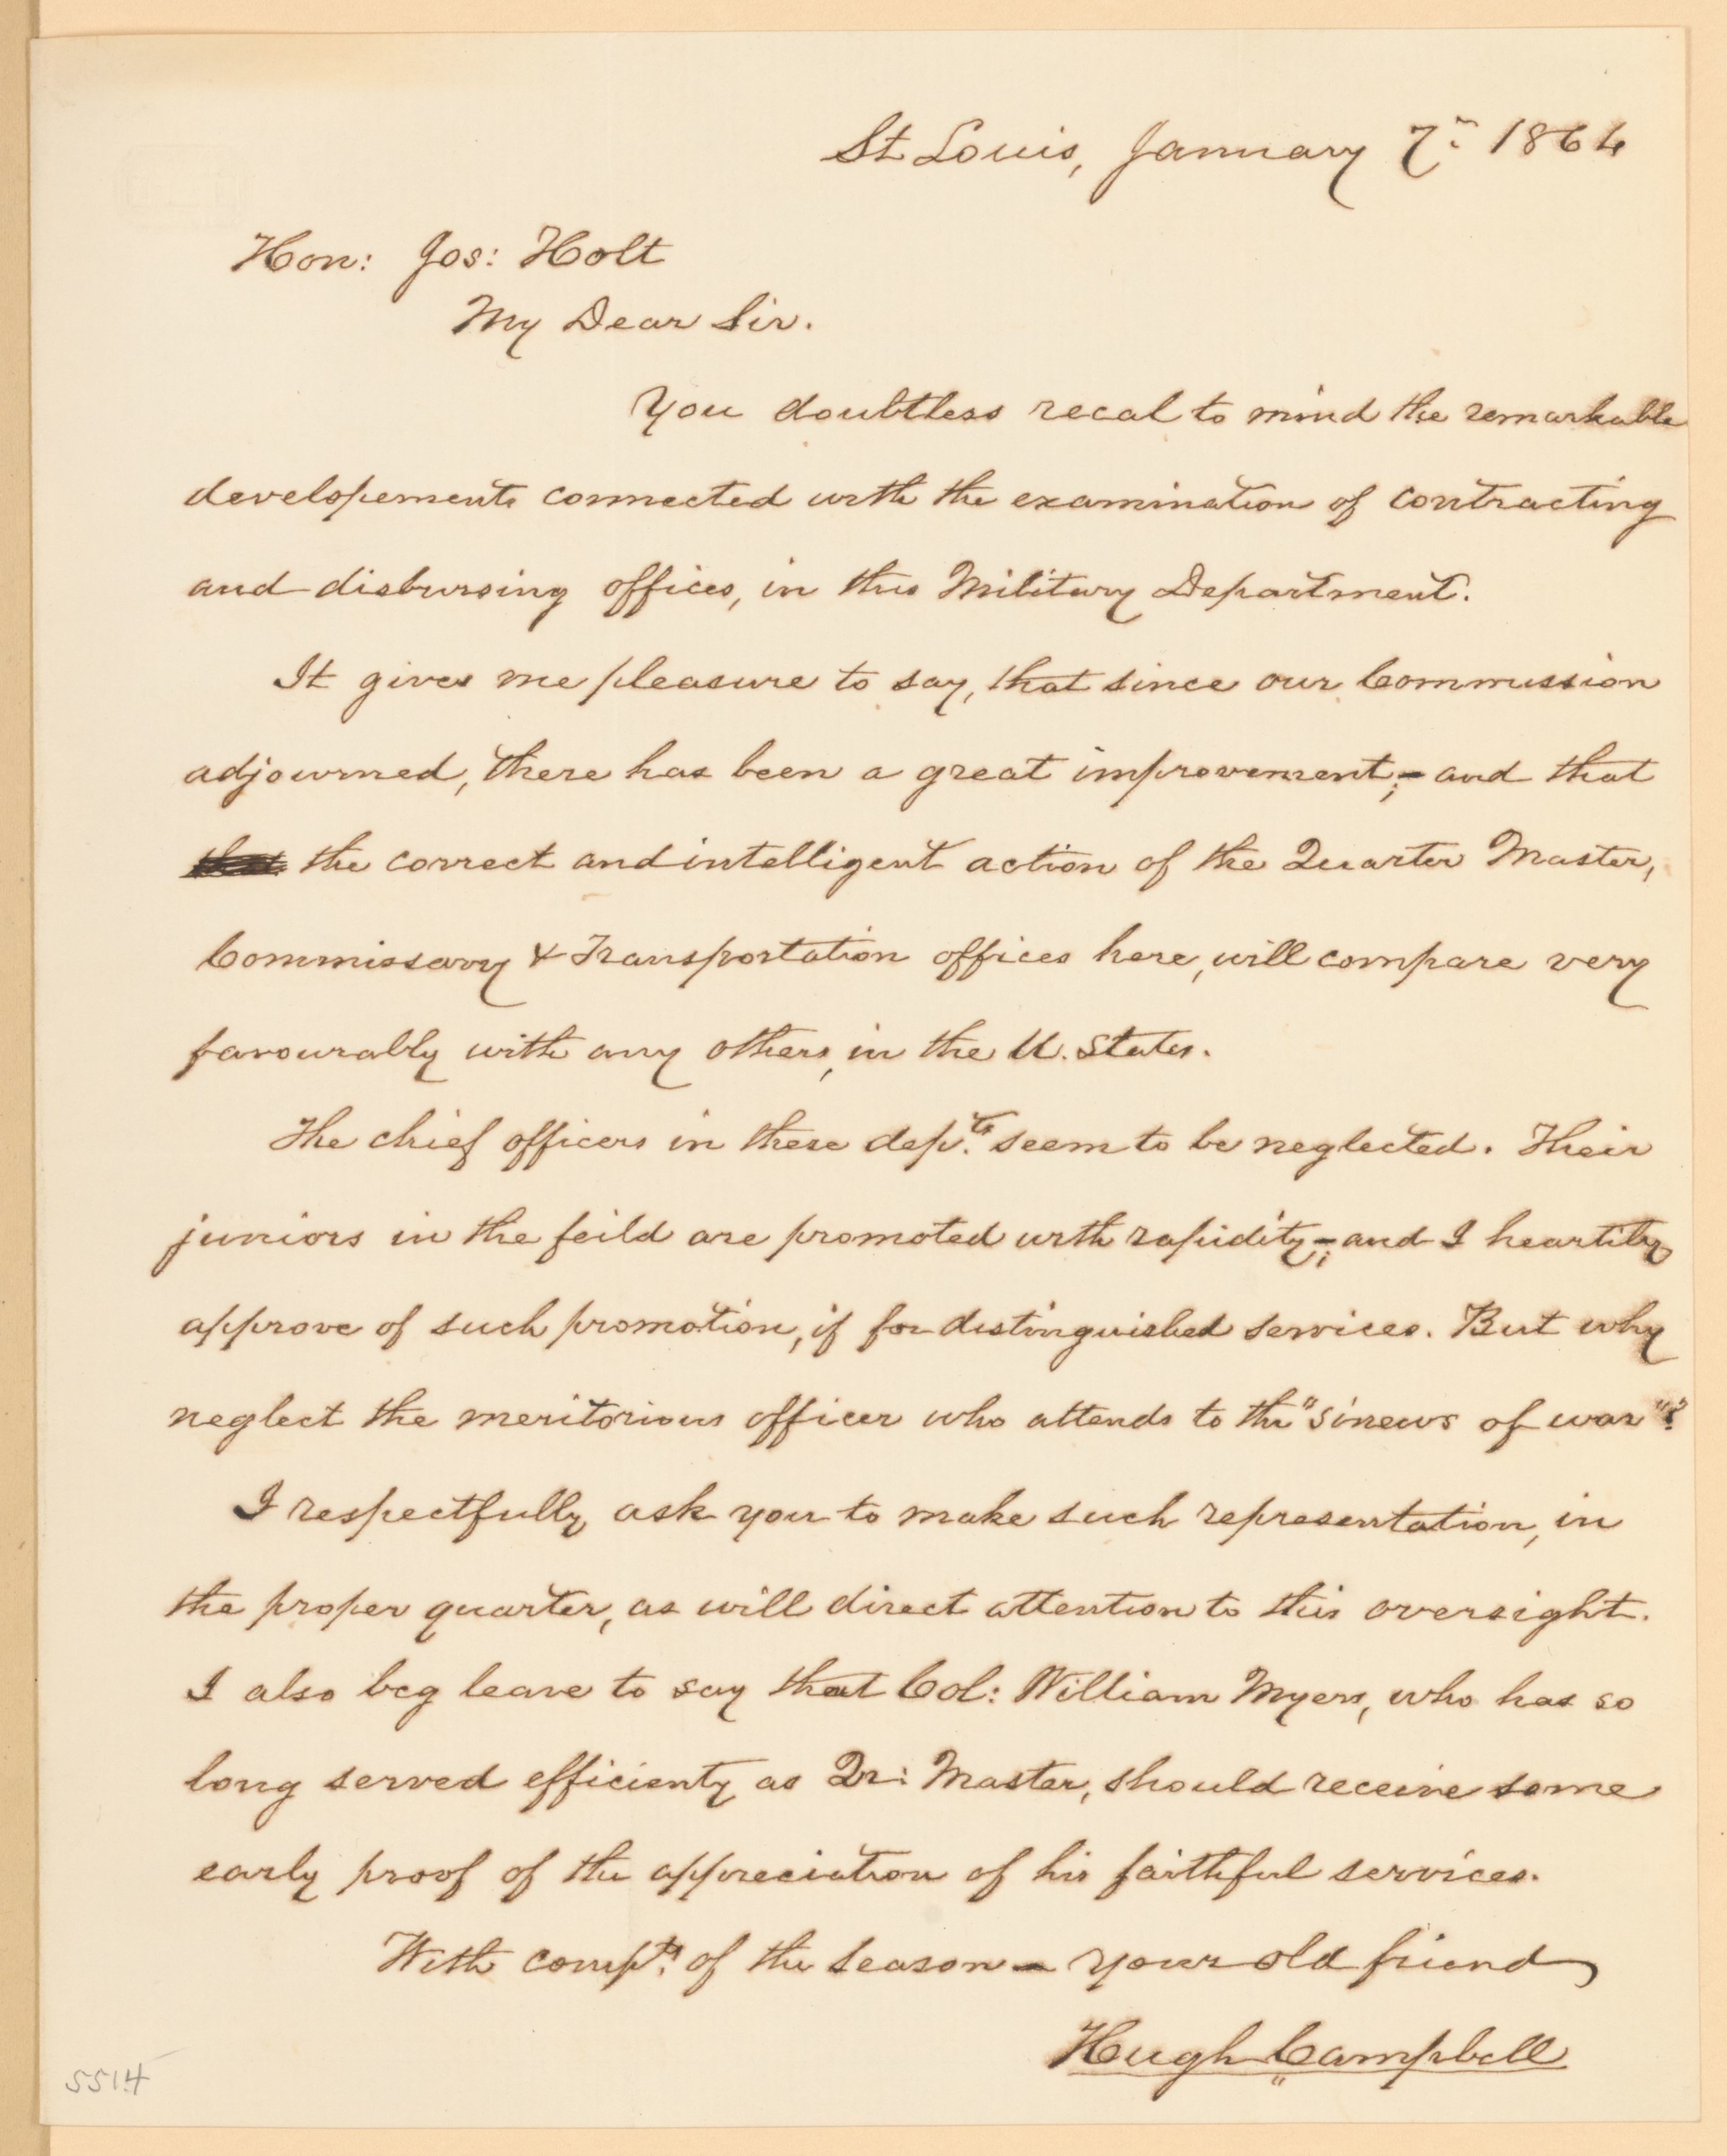 St Louis, January 7th 1864
Hon: Jos: Holt
My Dear Sir.
You doubtless recal to mind the remarkable
developements connected with the examination of contracting
and disbursing offices, in this Military Department.
It gives me pleasure to say, that since our Commission
adjourned, there has been a great improvement;- and that
the correct and intelligent action of the Quarter Master,
Commissary & Transportation offices here, will compare very
favourably with any others, in the U. States.
The chief officers in these depts. seem to be neglected. Their
juniors in the feild are promoted with rapidity;- and I heartily
approve of such promotion, if for distinguished services. But why
neglect the meritorious officer who attends to the "sinews of war"?
I respectfully ask you to make such representation, in
the proper quarter, as will direct attention to this oversight.
I also beg leave to say that Col: William Myers, who has so
long served efficienty as Qr: Master, should receive some
early proof of the appreciation of his faithful services.
With compts. of the season - your old friend
Hugh Campbell
5514